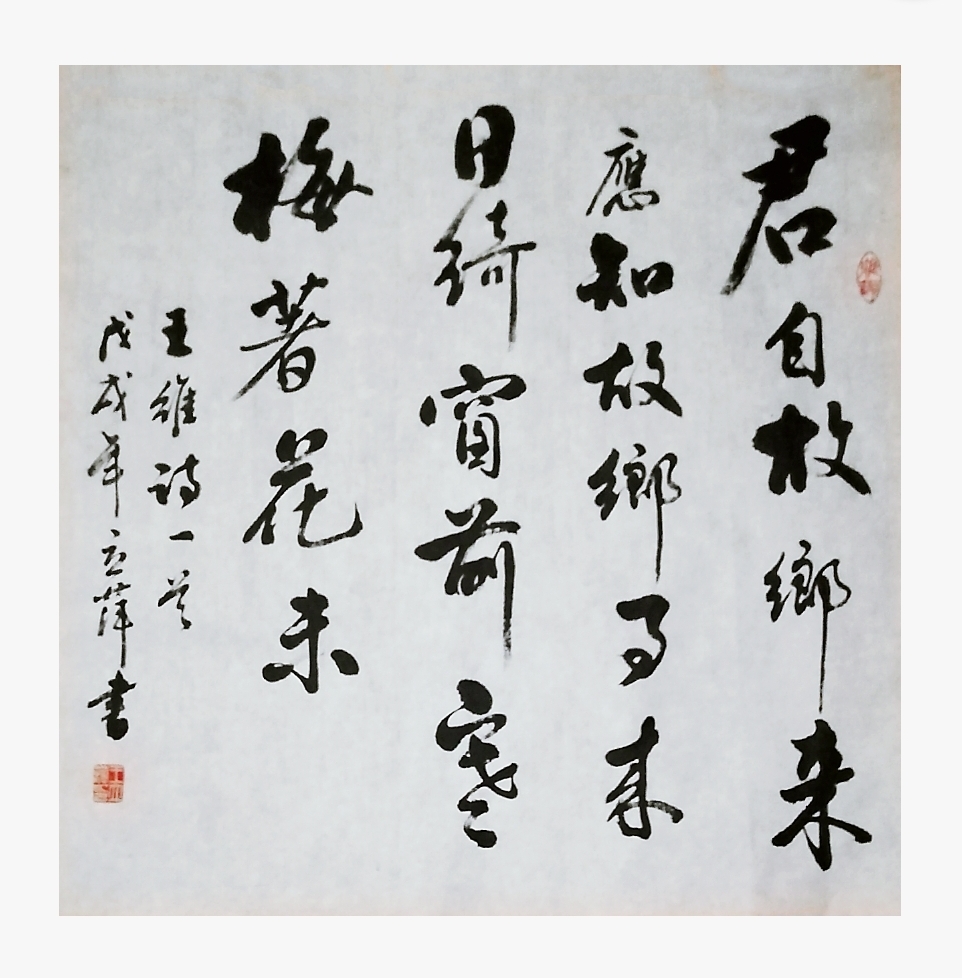 君自故鄉来
應知故鄉事来
日綺窗前寒
梅著花未
王維詩一首
戊戌年立萍書